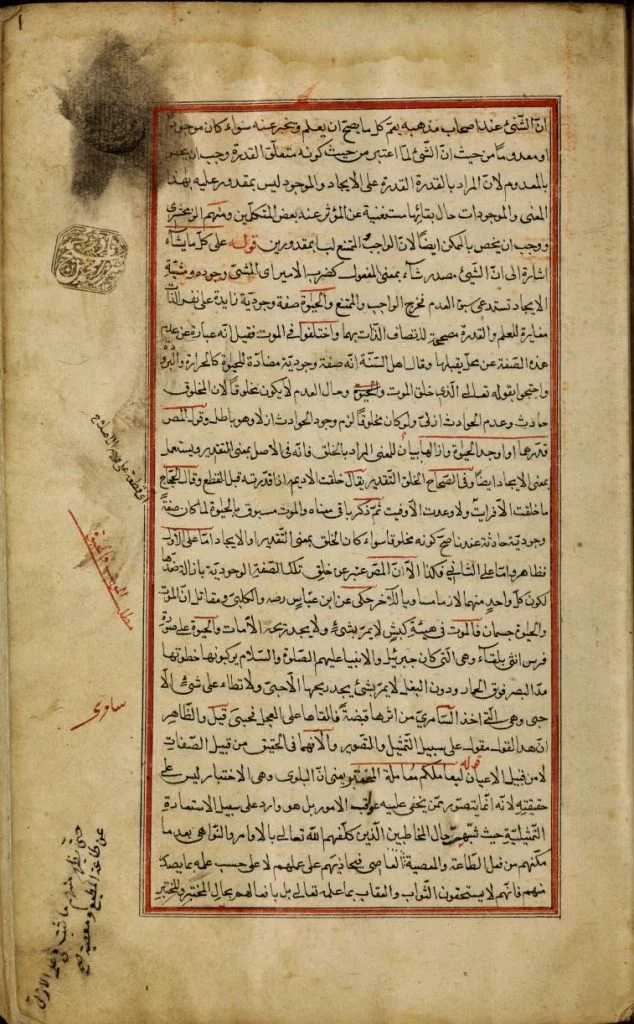 انّ الشّئ عند اصحاب مذهبه يعمّ كل ما يصحّ ان يعلم ويخبر عنه سواء كان موجودًا
او معدومًا من حيث انّ الشّئ لمّا اعتبر من حيث كونه متعلّق القدرة وجب ان يختص
بالمعدوم لانّ المراد بالقدرة القدرة على الايجاد والموجود ليس بمقدور عليه بهذا
المعنى والموجودات حال بقائها مستغنية عن المؤثر عند بعض المتكلمين ومنهم الزمخشرى
ووجب ان يخص بالممكن ايضًا لانّ الواجب والممتنع ليسا بمقدورين قوله على كلّ ما يشآء
اشارة الى انّ الشّئ مصدر شآء بمعنى المفعول كضرب الامير اى المشئ وجوده ومشيّة
الايجاد تستدعى سبق العدم فخرج الواجب والممتنع والحيوة صفة وجوديّة زايدة على نفس الذّات
مغايرة للعلم والقدرة مصحّحة لاتّصاف الذّات بهما واختلفوا فى الموت فقيل انّه عبارة عن عدم
هذه الصّفة عن محلّ يقبلها وقال اهل السّنّة انّه صفة وجوديّة مضادّة للحيوة كالحرارة والبرودة
واحتجوا بقوله تعالى الّذى خلق الموت والحيوة وحال العدم لا يكون مخلوقًا لان المخلوق
حادث وعدم الحوادث ازلىّ ولو كان مخلوقًا لزم وجود الحوادث ازلا وهو باطل وقول المص
قدّرهما او اوجد الحيوة وازالها بيان للمعنى المراد بالخلق فانّه فى الاصل بمعنى التقدير ويستعمل
بمعنى الايجاد ايضًا وفى الصّحاح الخلق التقدير يقال خلقت الاديم اذا قدّرته قبل القطع وقال الحجّاج
ما خلقت الّا فريت ولا وعدت الّا وفيت ثمّ ذكر باقى معناه والموت مسبوق بالحيوة لما كان صفةً
وجوديّة حادثة عندنا صح كونه مخلوقا سواء كان الخلق بمعنى التقدير او الايجاد امّا على الاوّل
فظاهر وامّا على الثانى فكذا الّا انّ المص عبّر عن خلق تلك الصّفة الوجوديّة بازالة ضدّها
لكون كلّ واحدٍ منهما لازما مساويا للآخر حكى عن ابن عبّاس رضه والكلبىّ ومقاتل انّ الموت
والحيوة جسمان فالموت فى هيئة كبش لا يمرّ بشئ ولا يجد ريحه الّا مات والحيوة على صورة
فرس انثى بلقآء وهى الّتى كان جبرئيل والانبيا عليهم الصّلوة والسّلام يركبونها خطوتها
مدّ البصر فوق الحمار ودون البغل لا يمرّ بشئ يجد ريحها الّا حيى ولا تطاء على شئ الّا
حيى وهى الّتى اخذ السّامرىّ من اثرها قبضةً فالقاها على العجل فحيى قيل والظّاهر
انّ هذا القول مقول على سبيل التّمثيل والتّصوير والّا فهما فى التحقيق من قبيل الصّفات
لا من قبيل الاعيان قوله ليعاملكم معاملة المختبر يعنى انّ البلوى وهى الاختبار ليس على
حقيقته لانّه انّما يتصوّر ممّن يخفى عليه عواقب الامور بل هو وارد على سبيل الاستعارة
التّمثيليّة حيث شبّه حال المخاطبين الذّين كلّفهم اللّه تعالى بالاوامر والنّواهى بعد ما
مكّنهم من فعل الطّاعة والمعصية فيجازيهم على عملهم لا على حسب علمه بما يصدر
منهم فانّهم لا يستحقون الثّواب والعقاب بما علمه تعالى بل بافعالهم بحال المختبر والمختبر
مطلب الموت والحيوة
ساوى